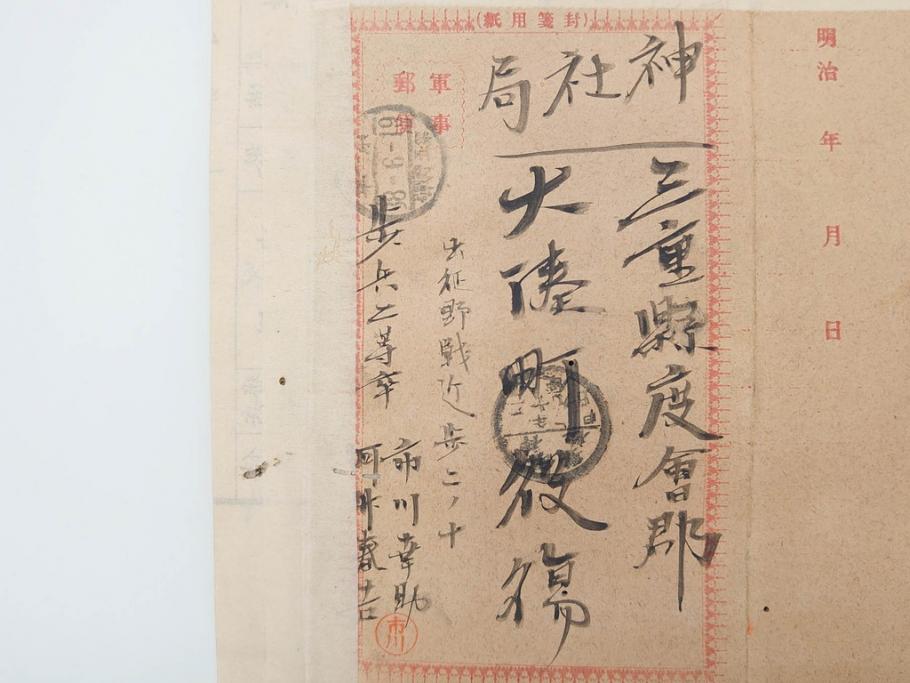 (紙用箋封)
明治　年　月　日
神社局
三重縣度會郡
大湊町役場
軍事
郵便
出征野戰近歩二ノ十
歩兵二等卒
市川幸助
春吉
市川